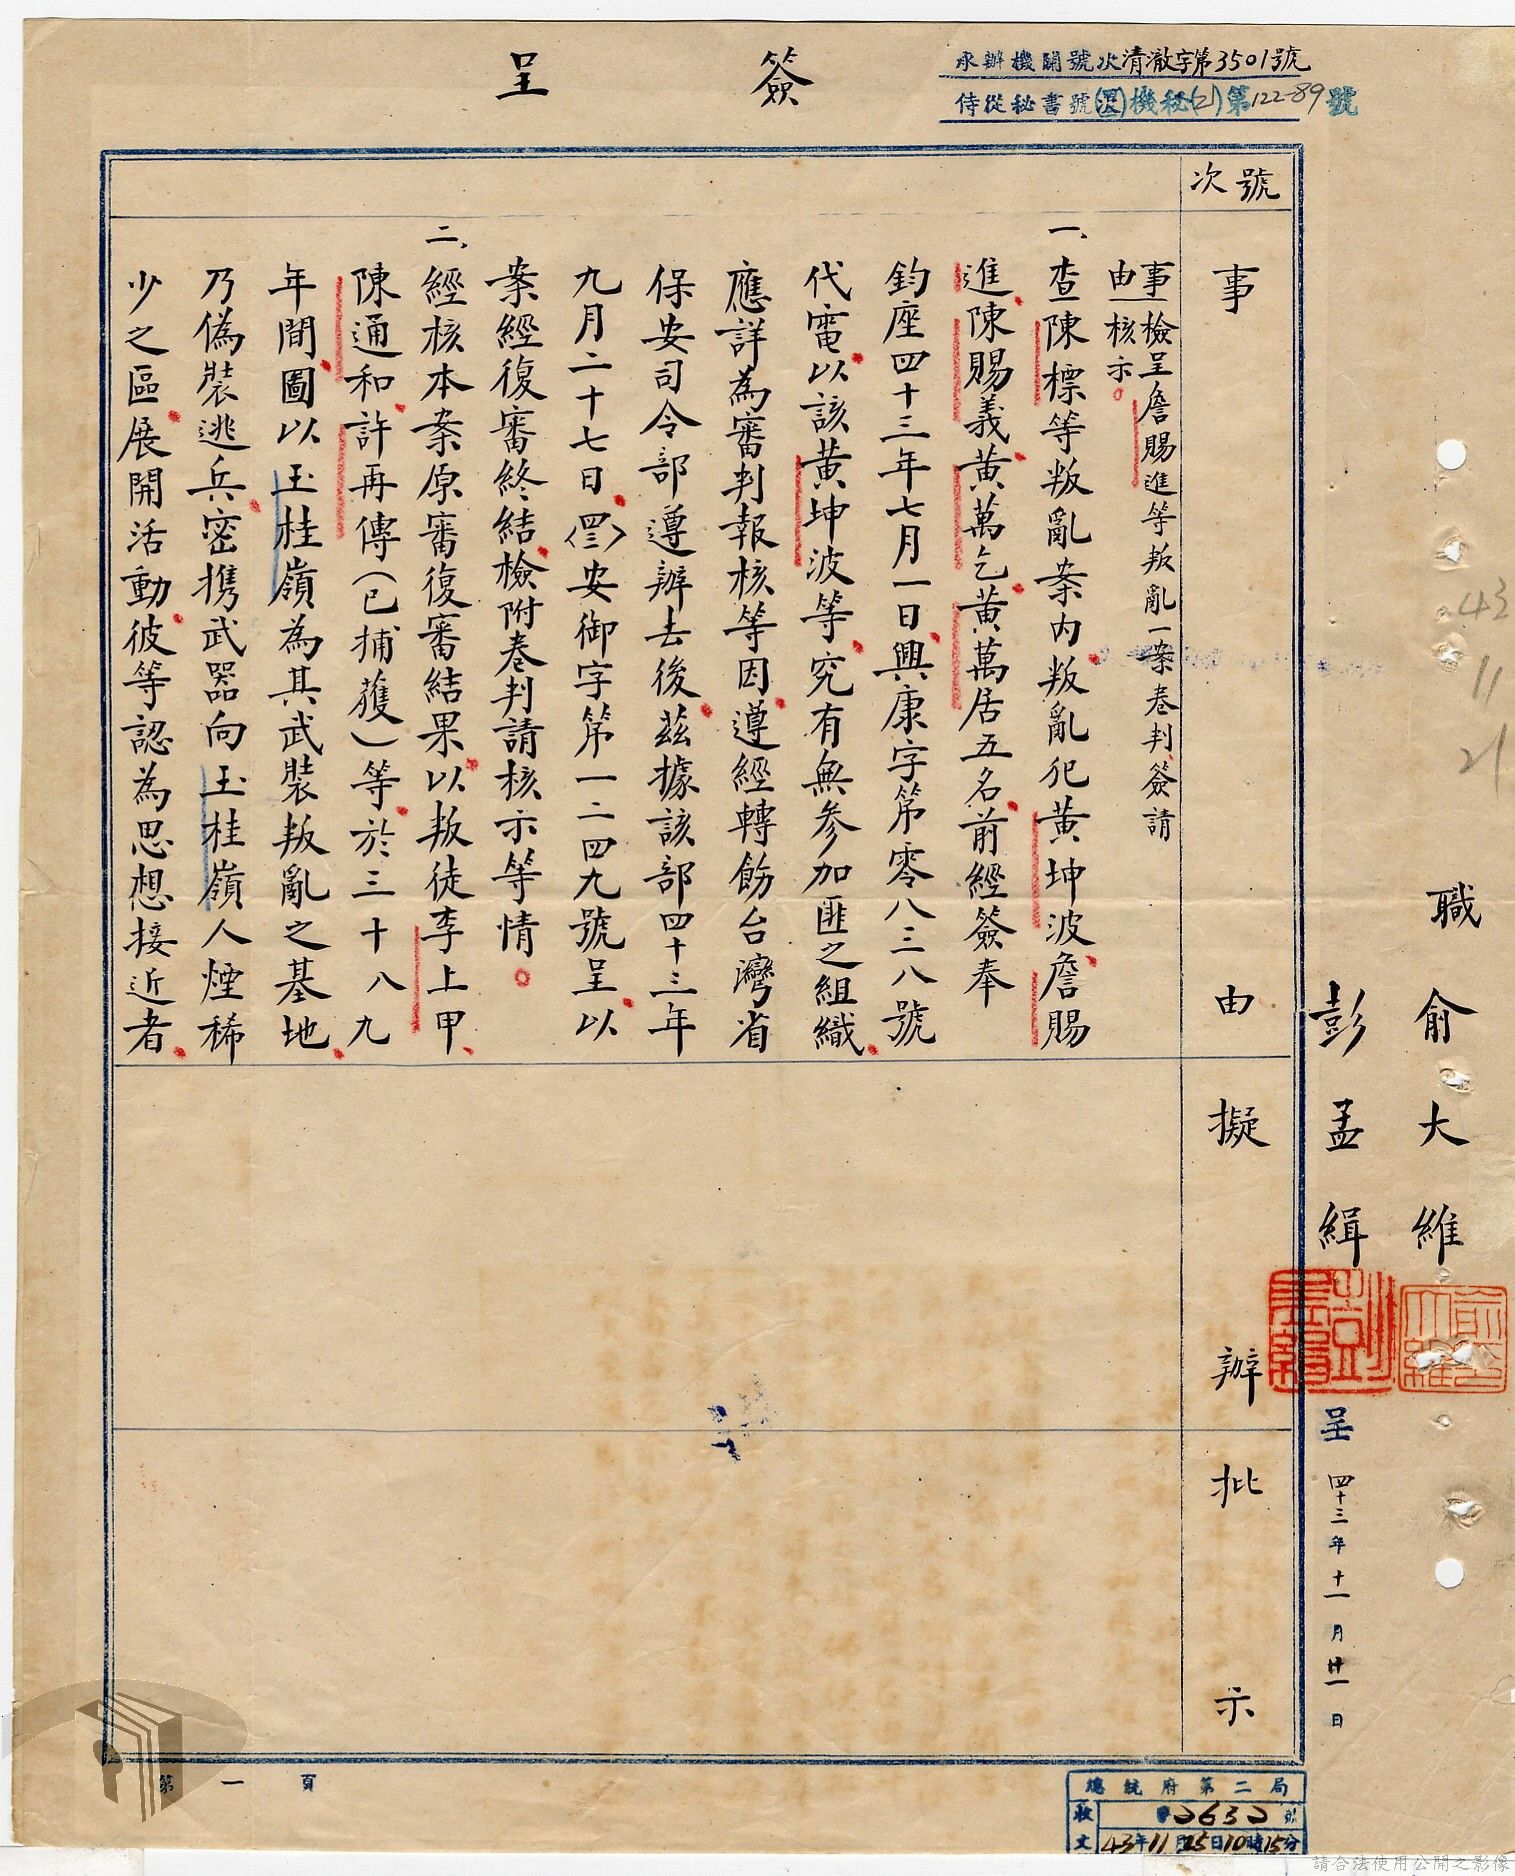 簽呈
承辦機關號次清澈字第3501號
侍從秘書號機秘(2)第122-89號
號次
事由
擬辦
批示
事由 檢呈詹賜進等叛亂一案卷判簽請
核示。
一、查陳標等叛亂案內、叛亂犯黃坤波、詹賜
進、陳賜義、黃萬乞、黃萬居五名、前經簽奉
鈞座四十三年七月一日、興康字第零八三八號
代電、以該黃坤波等、究有無參加匪之組織、
應詳為審判報核等因、遵經轉飭台灣省
保安司令部遵辦去後、茲據該部四十三年
九月二十七日、〈四三〉安御字第一二四九號呈、以
案經復審終結、檢附卷判請核示等情。
二、經核本案原審復審結果、以叛徒李上甲、
陳通和、許再傳(已捕獲)等、於三十八九
年間、圖以玉桂嶺為其武裝叛亂之基地、
乃偽裝逃兵、密携武器向玉桂嶺人煙稀
少之區、展開活動、彼等認為思想接近者、
職俞大維
彭孟緝
呈
四十三年十一月廿一日
43
11
21
第一頁
總統府第二局
收文
2632號
43年11月25日10時15分
請合法使用公開之影像